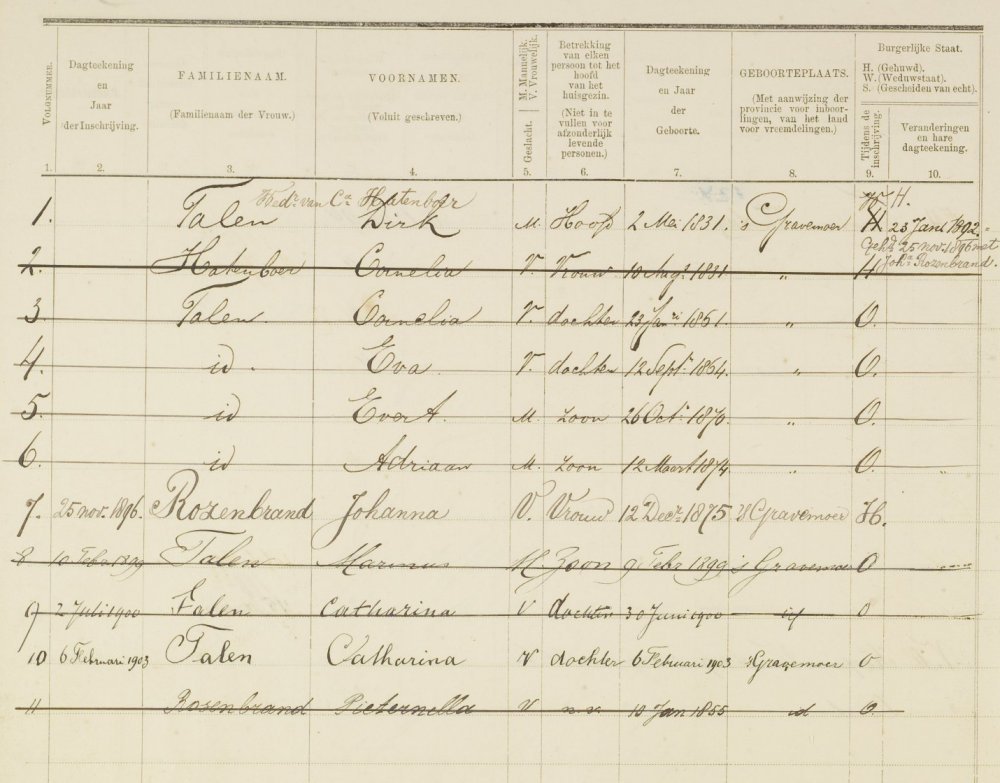 VOLGNUMMER.
Dagteekening en Jaar der Inschrijving.
FAMILIENAAM. (Familienaam der Vrouw.)
VOORNAMEN. (Voluit geschreven.)
Geslacht. M. Mannelijk. V. Vrouwelijk.
Betrekking van elken persoon tot het hoofd van het huisgezin. (Niet in te vullen voor afzonderlijk levende personen.)
Dagteekening en Jaar der Geboorte.
GEBOORTEPLAATS. (Met aanwijzing der provincie voor inboorlingen, van het land voor vreemdelingen.)
Burgerlijke Staat.
H. (Gehuwd).
W. (Weduwstaat).
S. (Gescheiden van echt).
Tijdens de inschrijving.
Veranderingen en hare dagteekening.
1. 2. 3. 4. 5. 6. 7. 8. 9. 10.
Wedr. van Ca Hatenboer W. H.
1. Talen Dirk M. Hoofd 2 Mei 1831. 's Gravemoer H 23 Jan 1892.
Geh. 25 nov. 1896 met
2. Hatenboer Cornelia V. Vrouw 10 Aug. 1831 „ H Joha Rozenbrand.
3. Talen Cornelia V. dochter 23 Jan. 1861. „ O.
4. id. Eva V. dochter 12 Sept. 1864. „ O.
5. id Evert. M. zoon 26 Oct. 1870. „ O.
6. id Adriaan M. zoon 12 Maart 1874. „ O.
7. 25 nov. 1896. Rozenbrand Johanna V. Vrouw 12 Decr. 1875 's Gravemoer H.
8 10 Febr 1899 Talen Marinus M. Zoon 9 Febr 1899 's Gravemoer O
9 2 Juli 1900 Talen Catharina V dochter 30 Juni 1900 id O
10 6 Februari 1903 Talen Catharina V dochter 6 Februari 1903 's Gravemoer O
11 Rosenbrand Pieternella V n.v. 10 Jan 1855 id O.